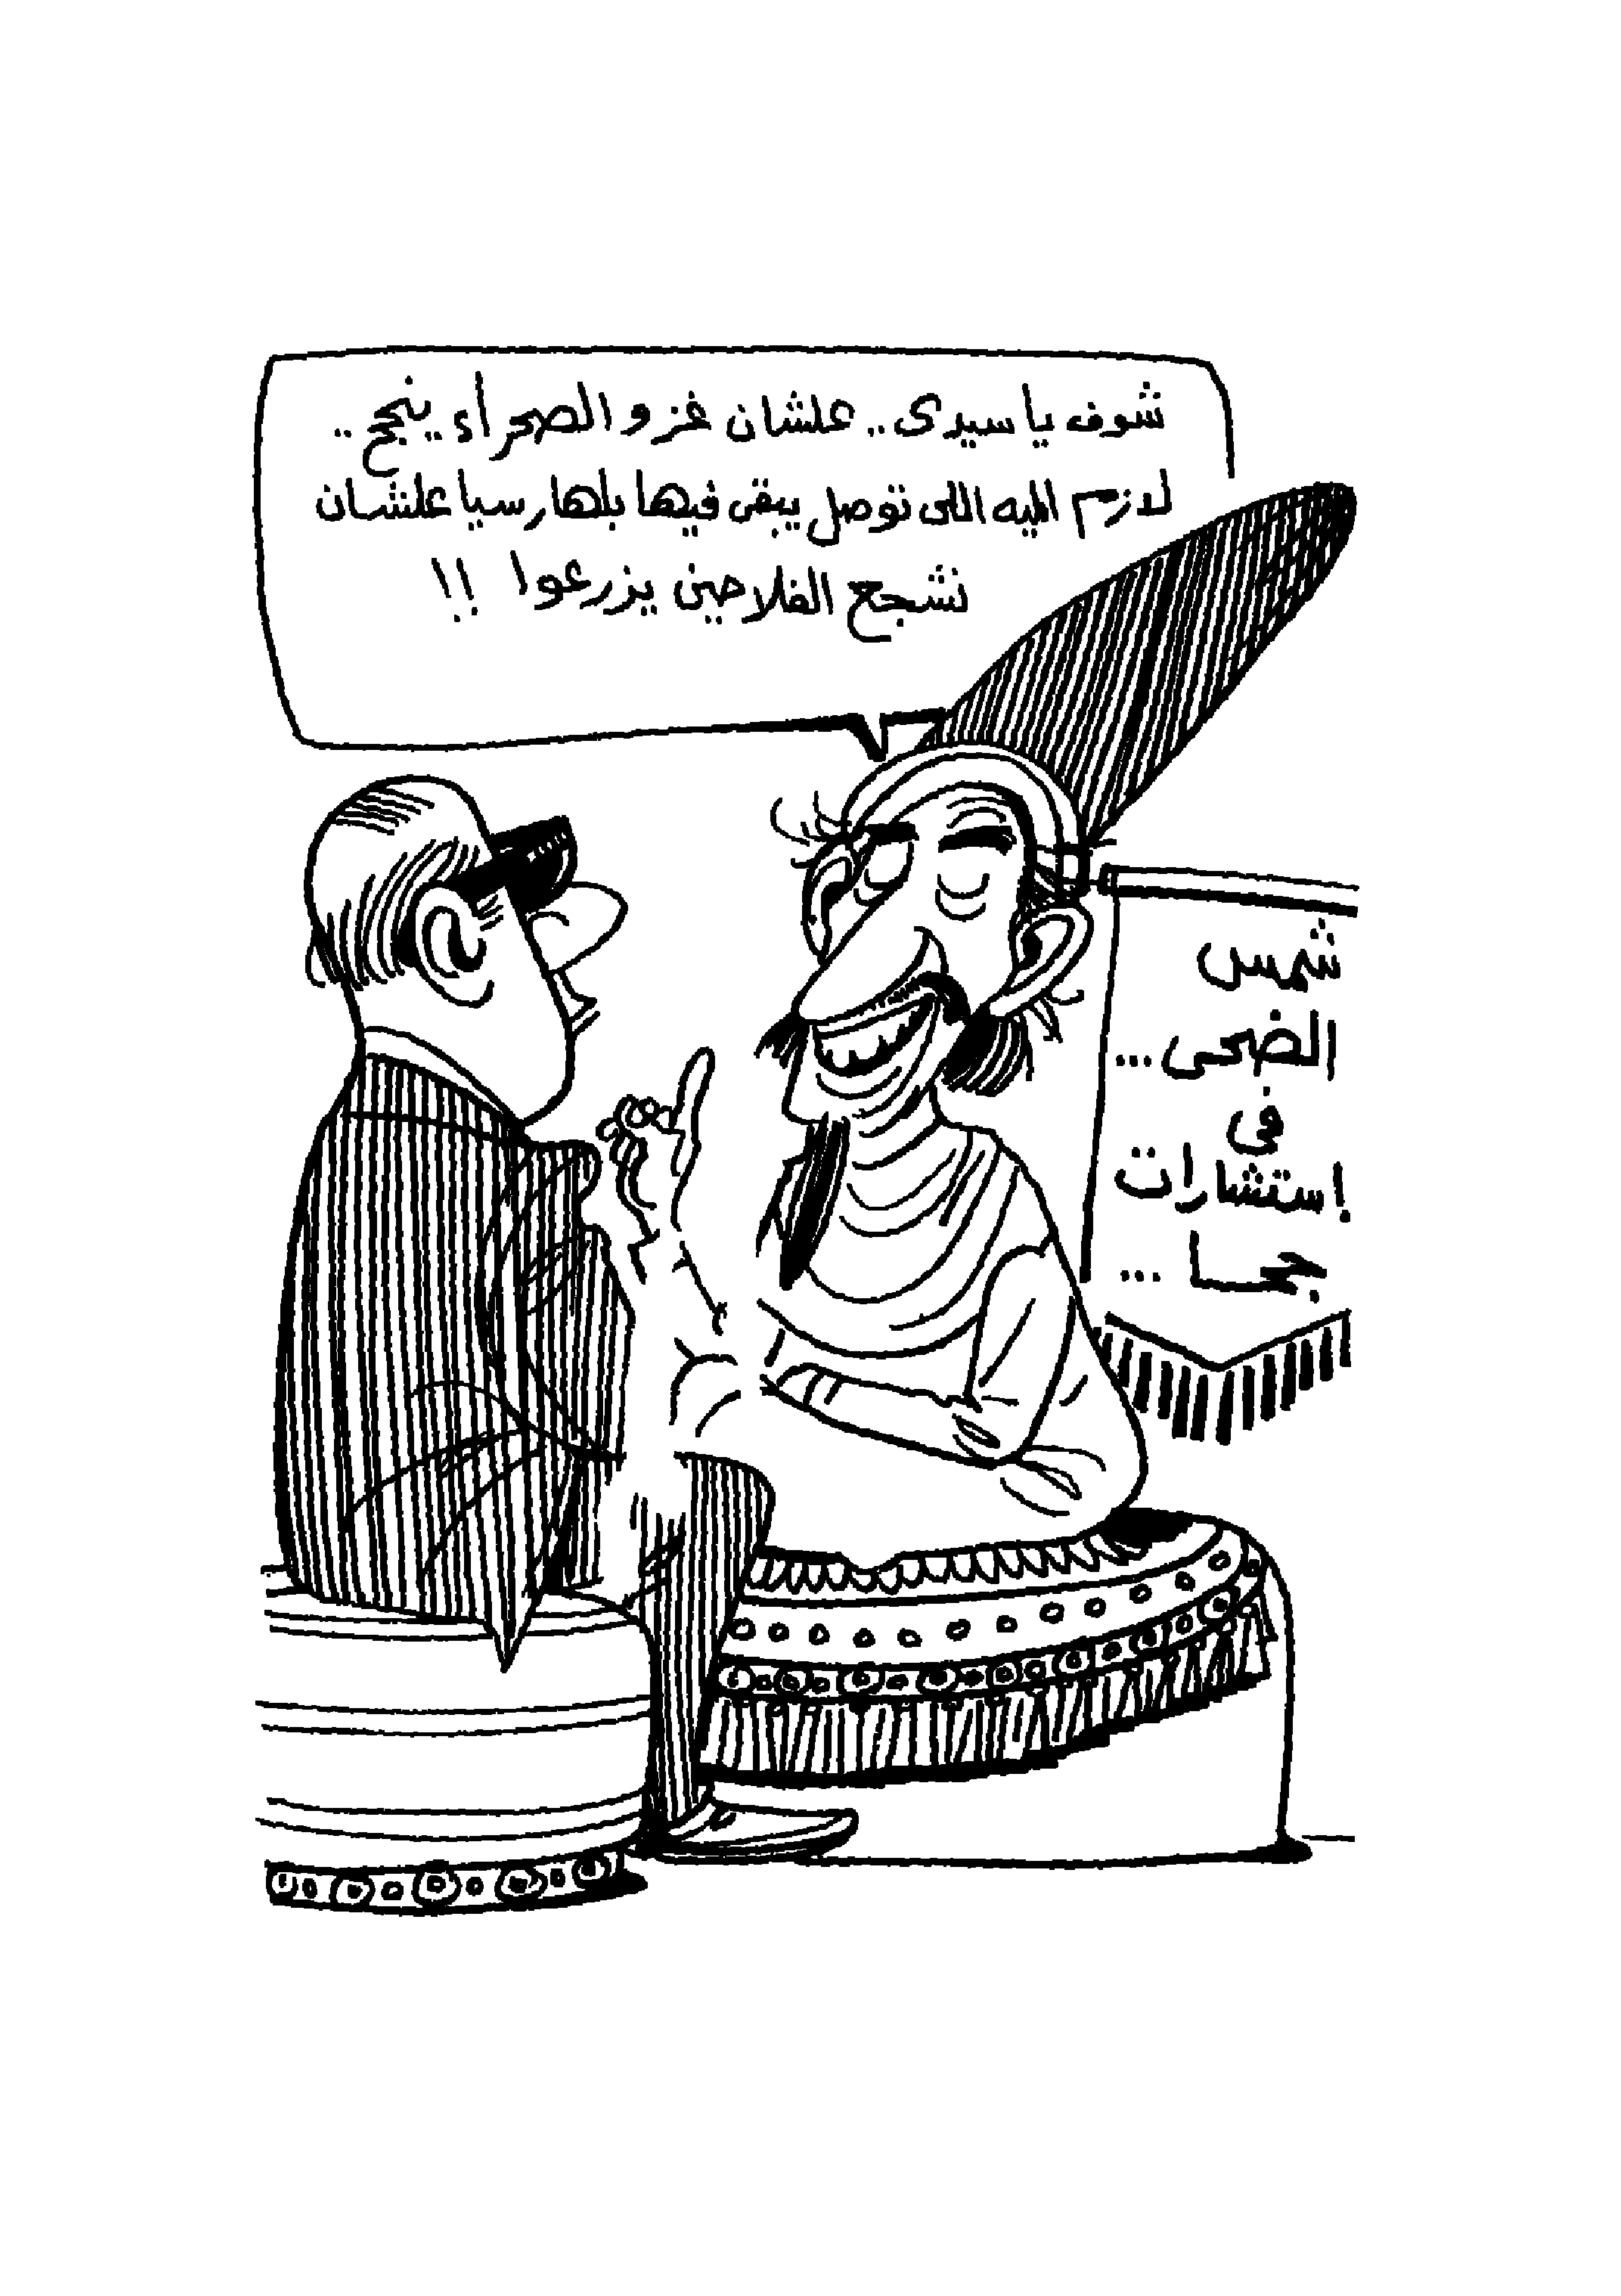 شوف يا سيدى.. علشان غزو الصحراء ينجح..
لازم الميه اللى توصل يبقى فيها بلهارسيا علشان
نشجع الفلاحين يزرعوا !!
شمس
الضحى...
فى
إستشارات
جحا...